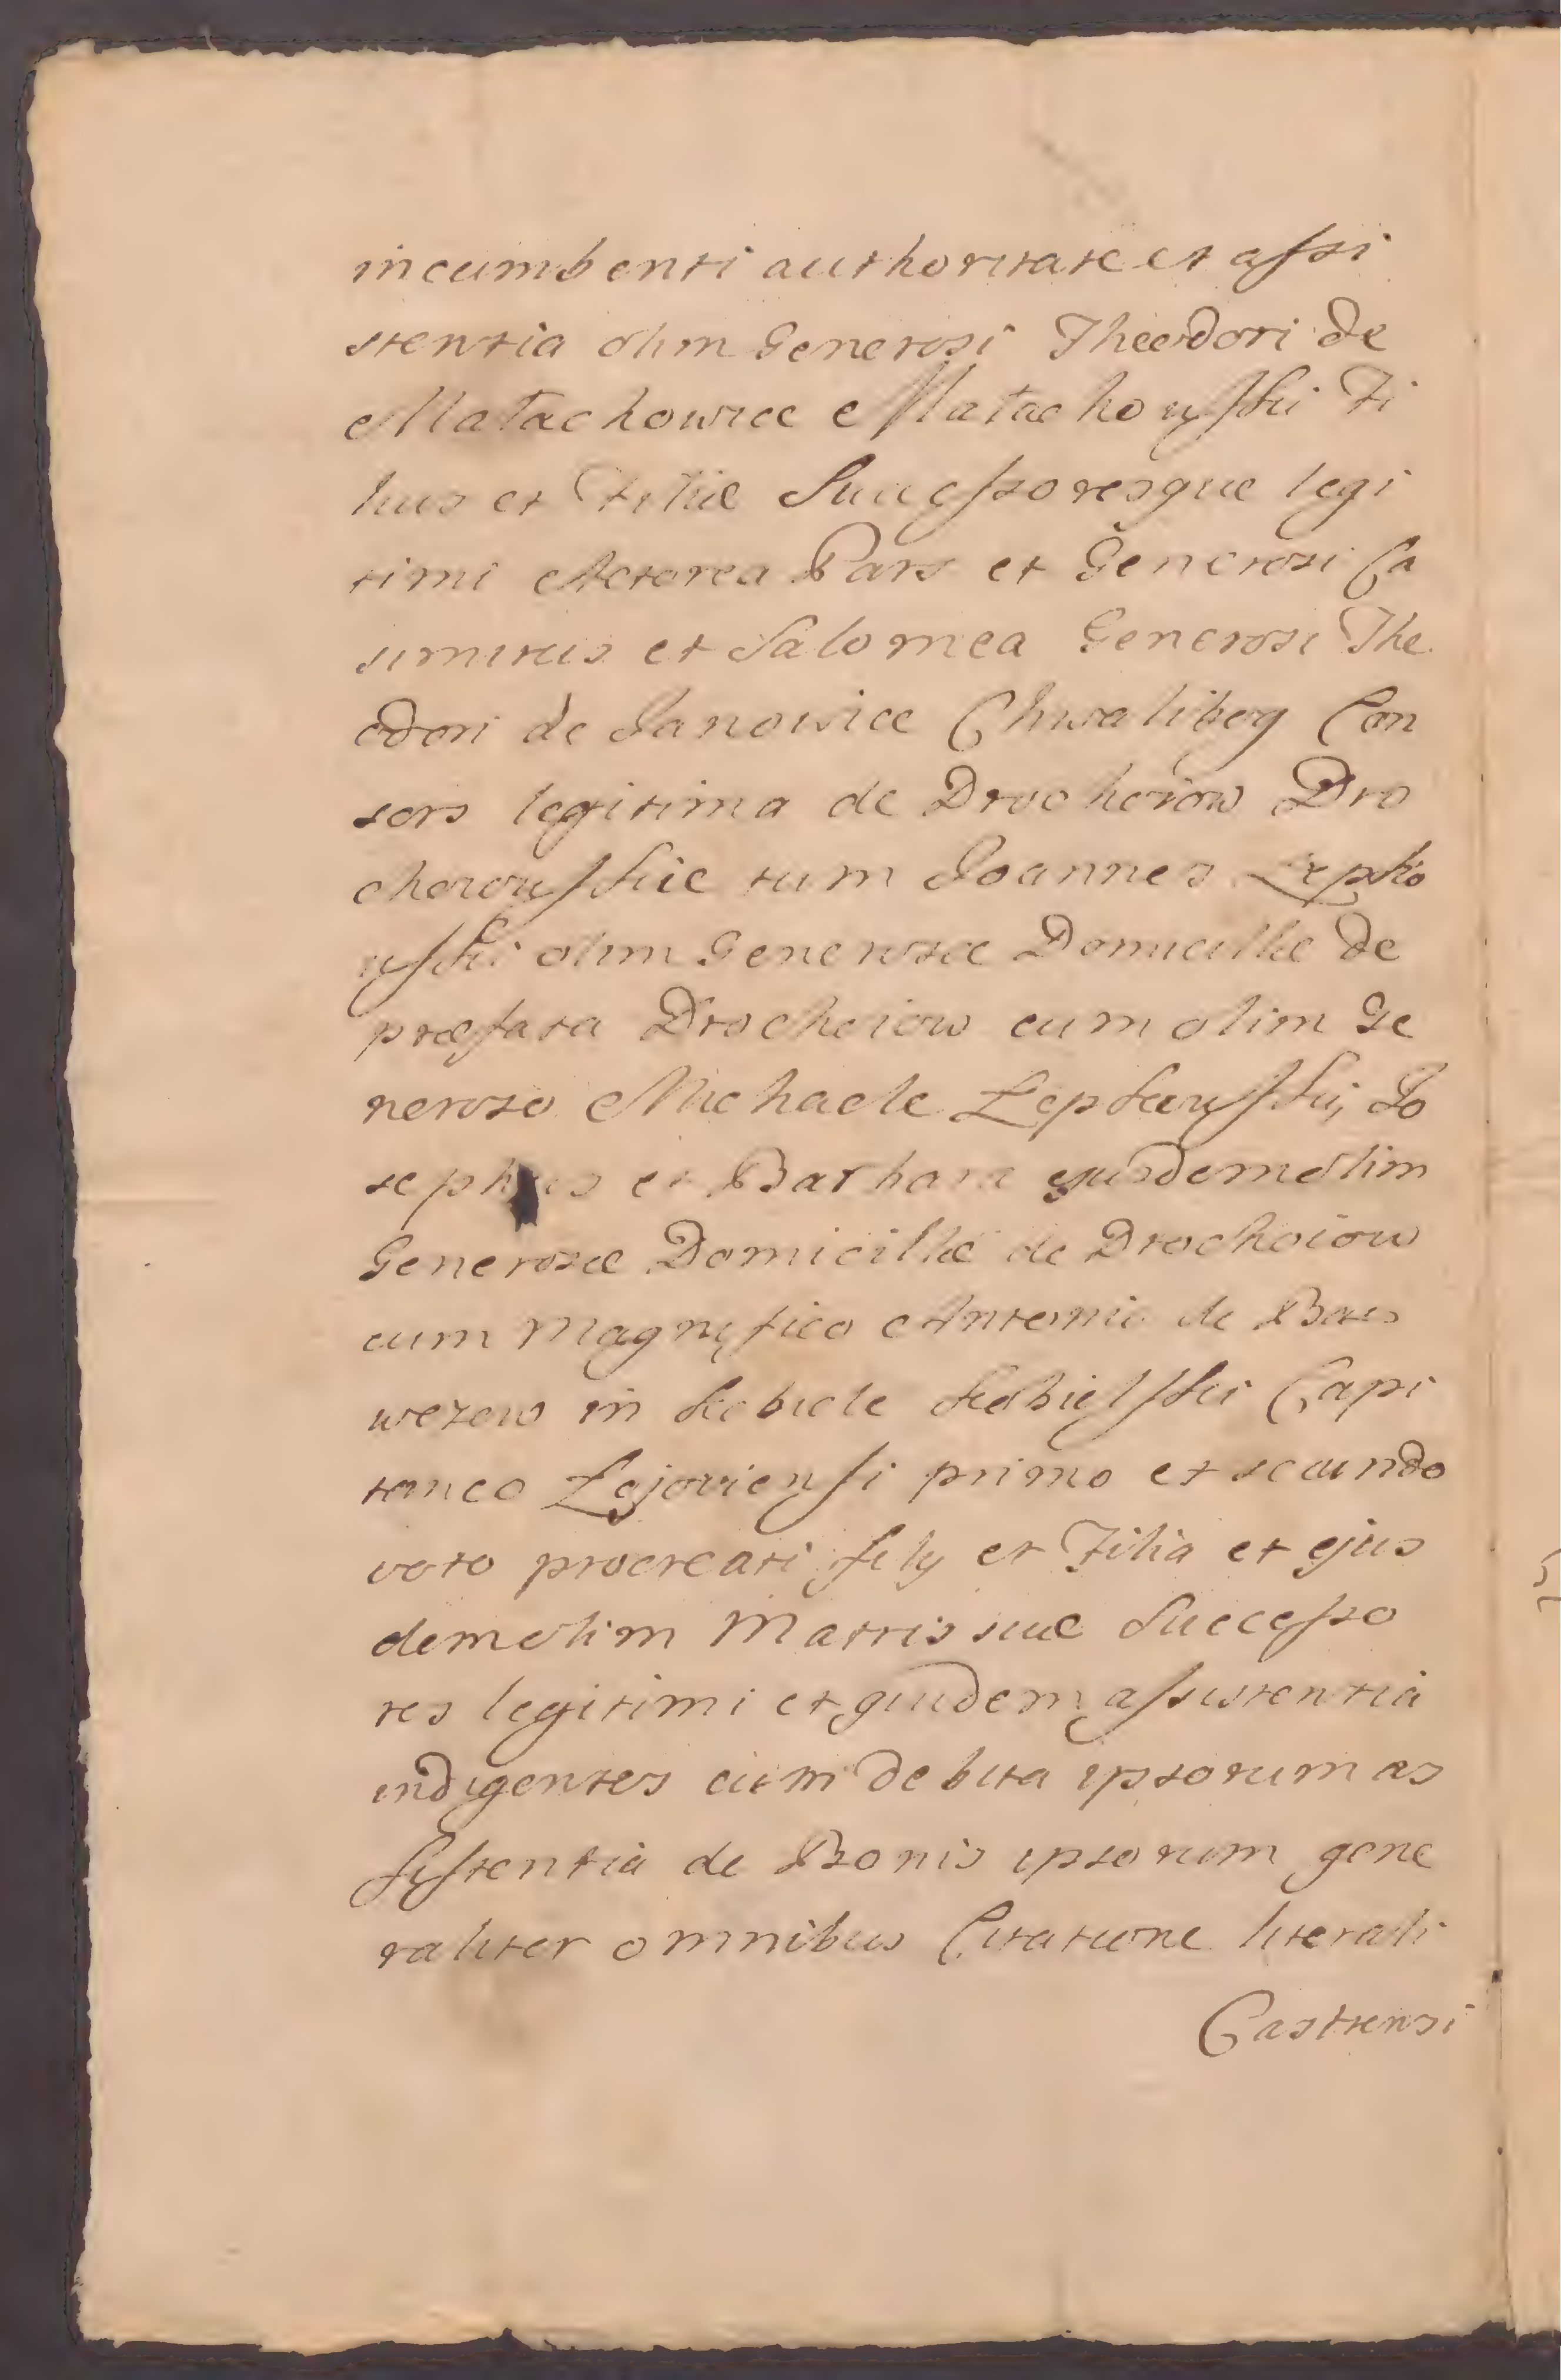 incumbenti authoritate et assi
stentia olim Generosi Theodori de
Małachowice Małachowski Fi
lius et Filiæ Successoresque legi
timi Actorea Pars et Generosi Ca
simirus et Salomea Generosi The
odori de Janowice Chwalibog Con
sors legitima de Drochoiow Dro
choiowskie tum Joannes Lepko
wski olim Generosæ Domicillæ de
præfata Drochoiow cum olim Ge
neroso Michaele Lepkowski, Jo
sephus et Barbara ejusdem olim
Generosæ Domicillæ de Drochoiow
cum Magnifico Antonio de
in Kebiele Kebielski Capi
taneo Lejoviensi primo et secundo
voto procreati filij et Filia et ejus
dem olim Matris suæ Successo
res legitimi et quidem assistentia
indigentes cum debita ipsorum as
sistentia de Bonis ipsorum gene
raliter omnibus Citatione literali
Castrensi